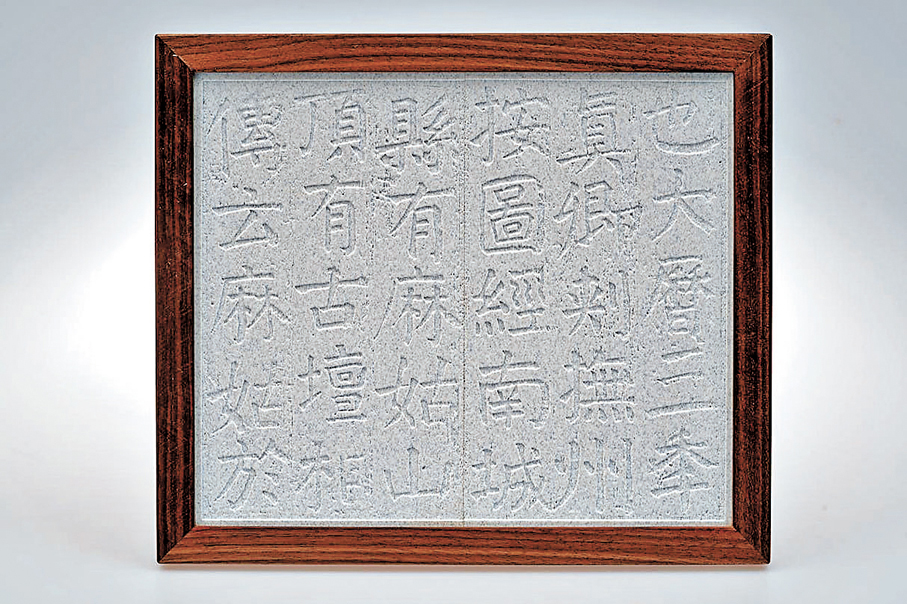 也大曆三年
真卿刾撫州
按圖經南城
縣有麻姑山
頂有古壇相
傳云麻姑於